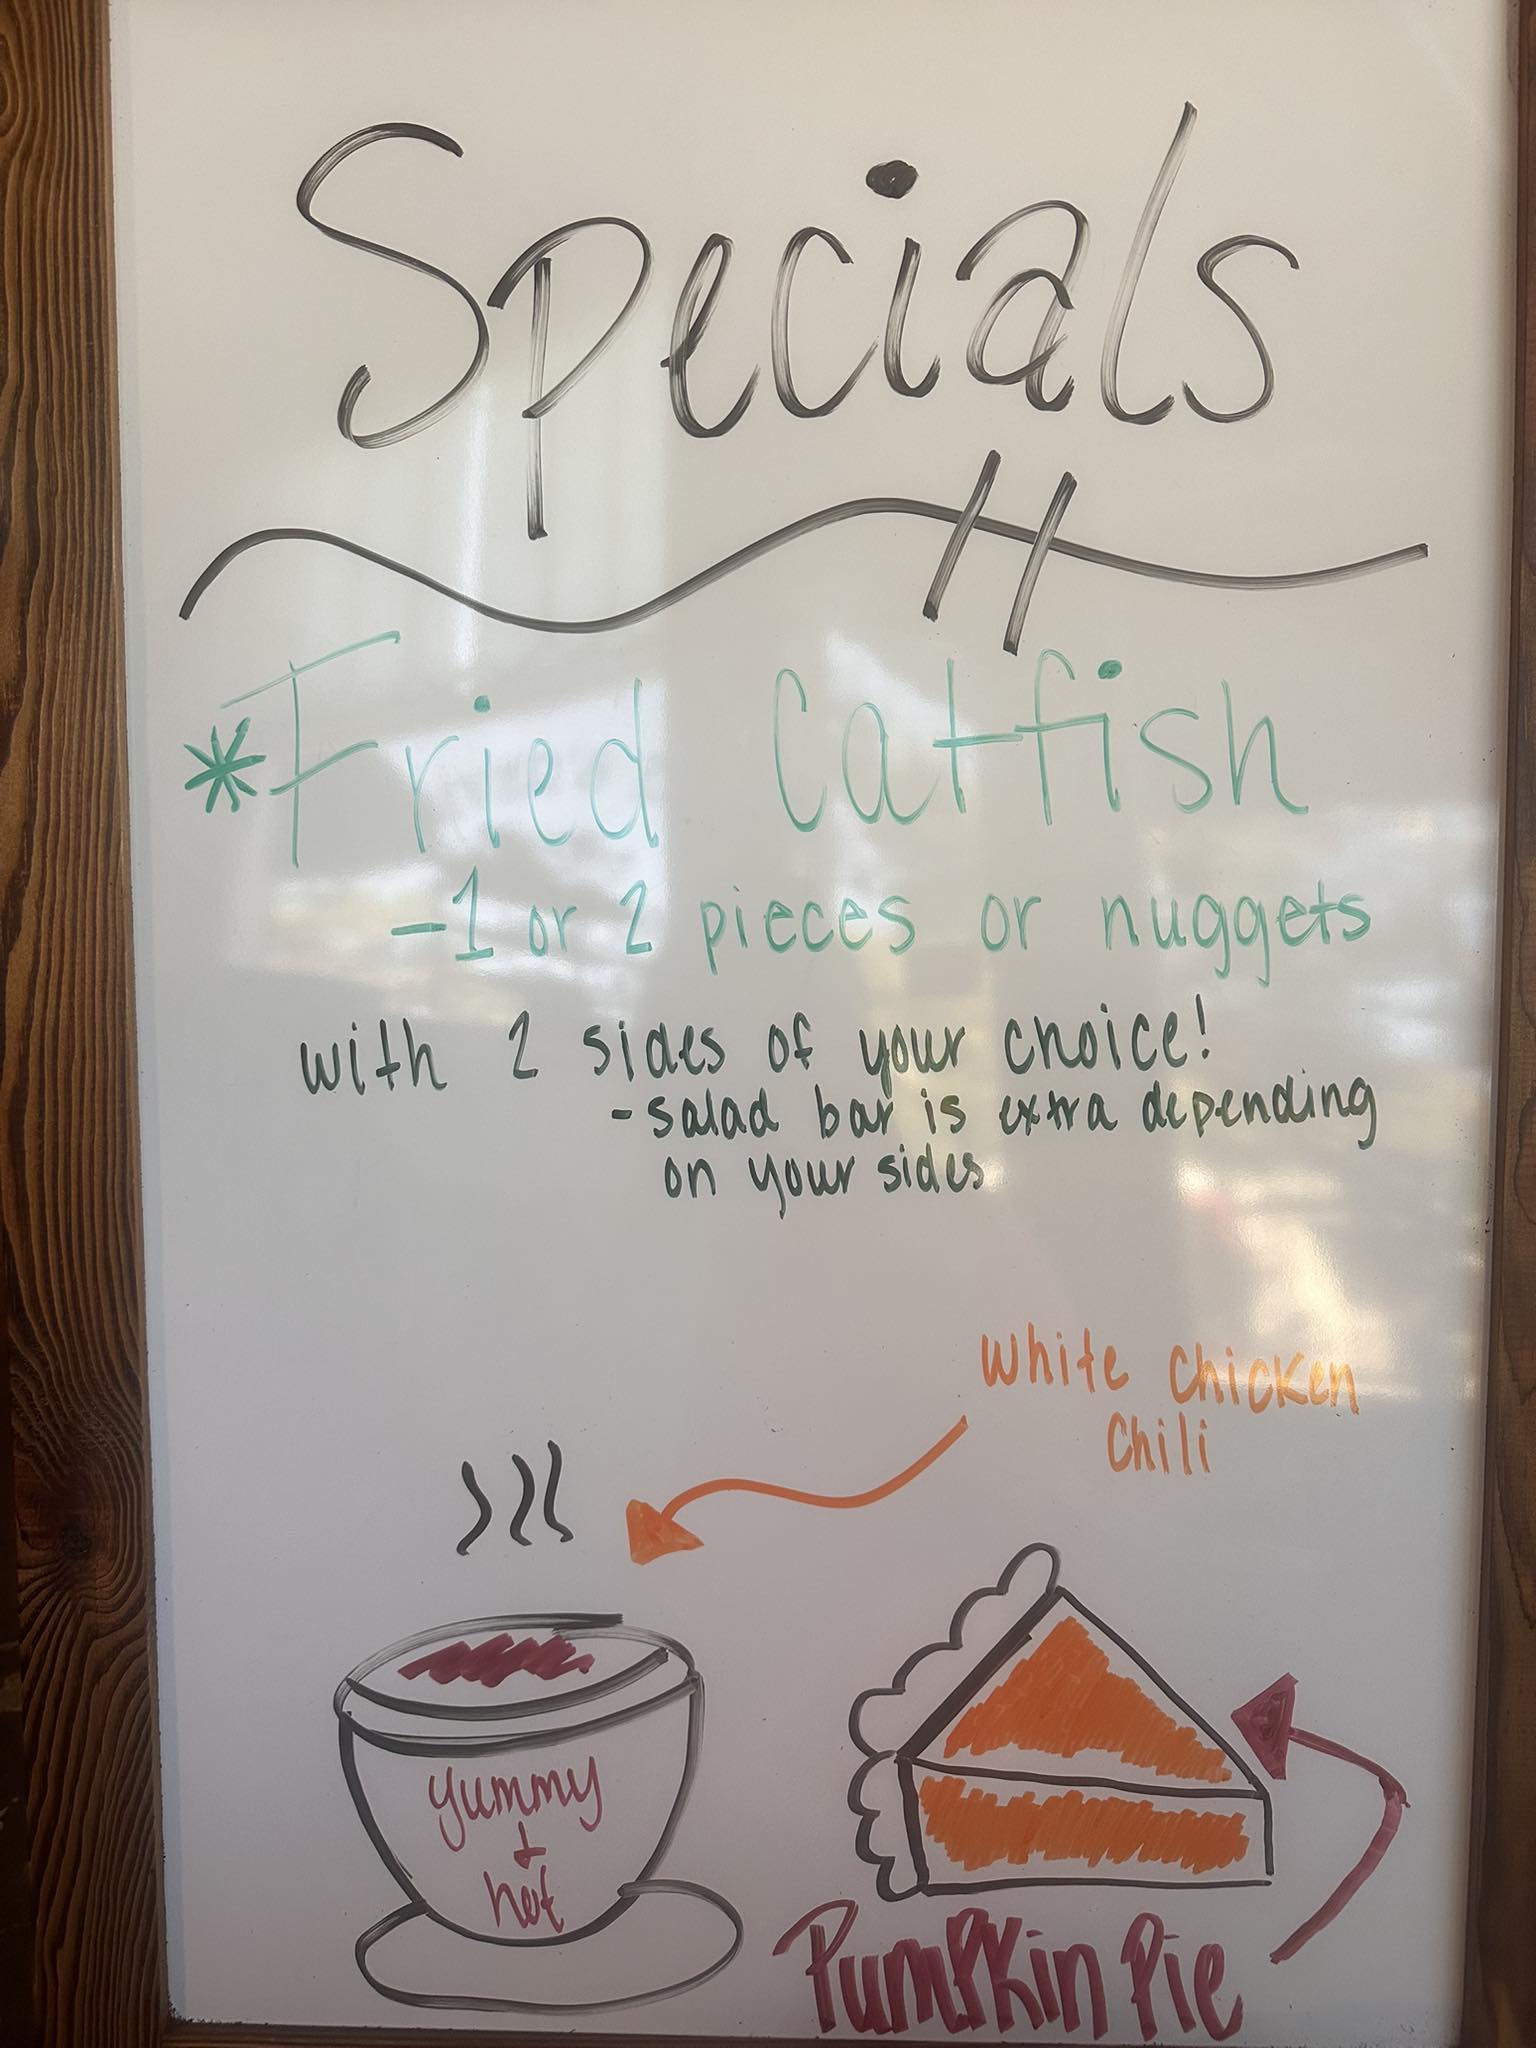 Specials
*Fried Catfish
-1 or 2 pieces or nuggets
with 2 sides of your choice!
-salad bar is extra depending
on your sides
White Chicken
Chili
yummy
+
hot
Pumpkin Pie